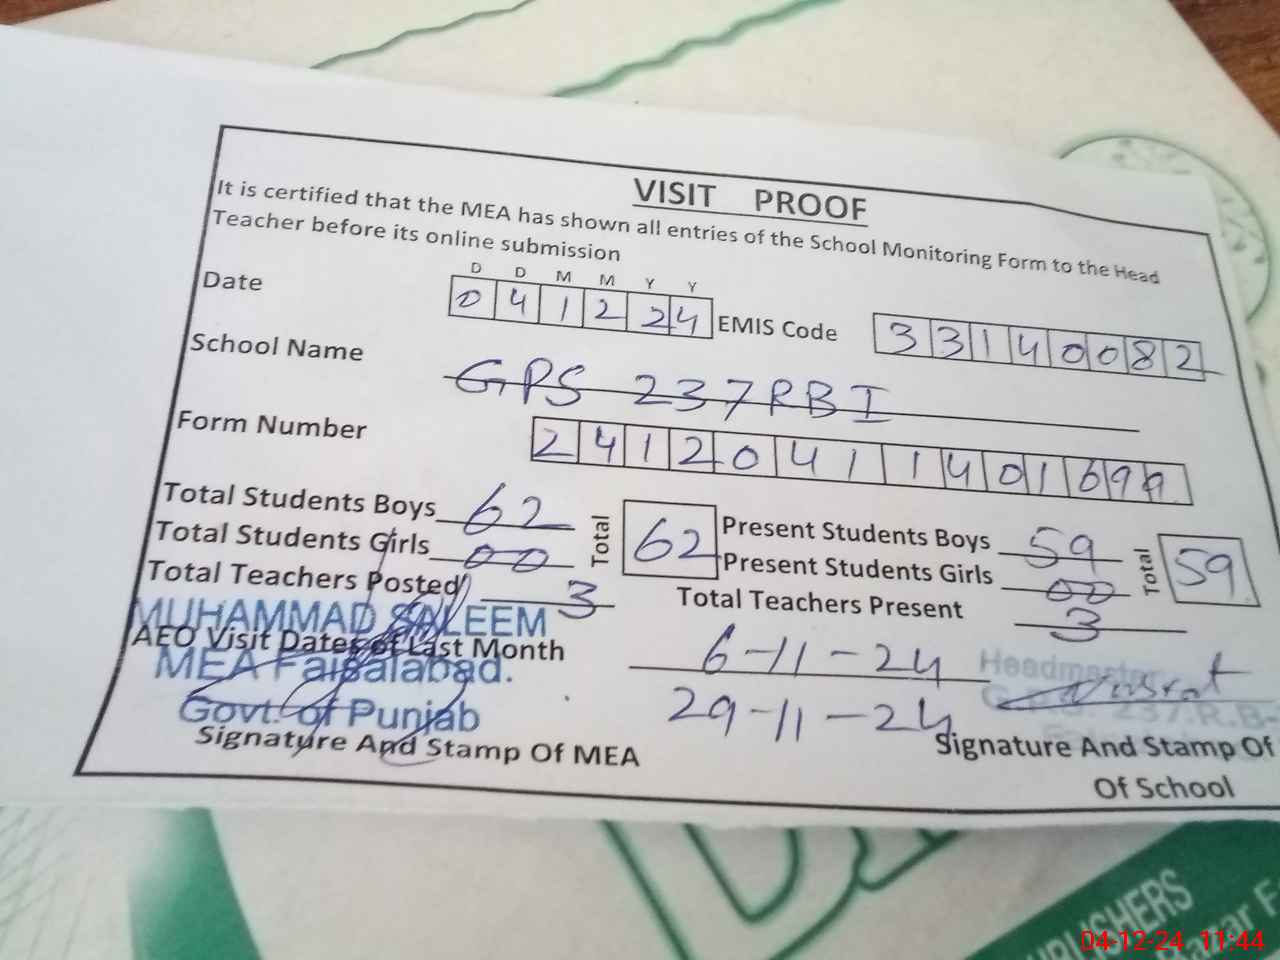 VISIT PROOF
It is certified that the MEA has shown all entries of the School Monitoring Form to the Head
Teacher before its online submission
D D M M Y Y
Date 0 4 1 2 2 4 EMIS Code 3 3 1 4 0 0 8 2
School Name GPS 237RBI
Form Number 2 4 1 2 0 4 1 1 4 0 1 6 9 9
Total Students Boys 62 Total 62 Present Students Boys 59 Total 59
Total Students Girls 00 Present Students Girls 00
Total Teachers Posted 3 Total Teachers Present 3
MUHAMMAD SALEEM
AEO Visit Dates of Last Month 6-11-24
MEA Faisalabad. Headmaster
29-11-24 G.P.S. 237.R.B-
Govt. of Punjab
Signature And Stamp Of MEA Signature And Stamp Of
Of School
PUBLISHERS
04-12-24 11:44